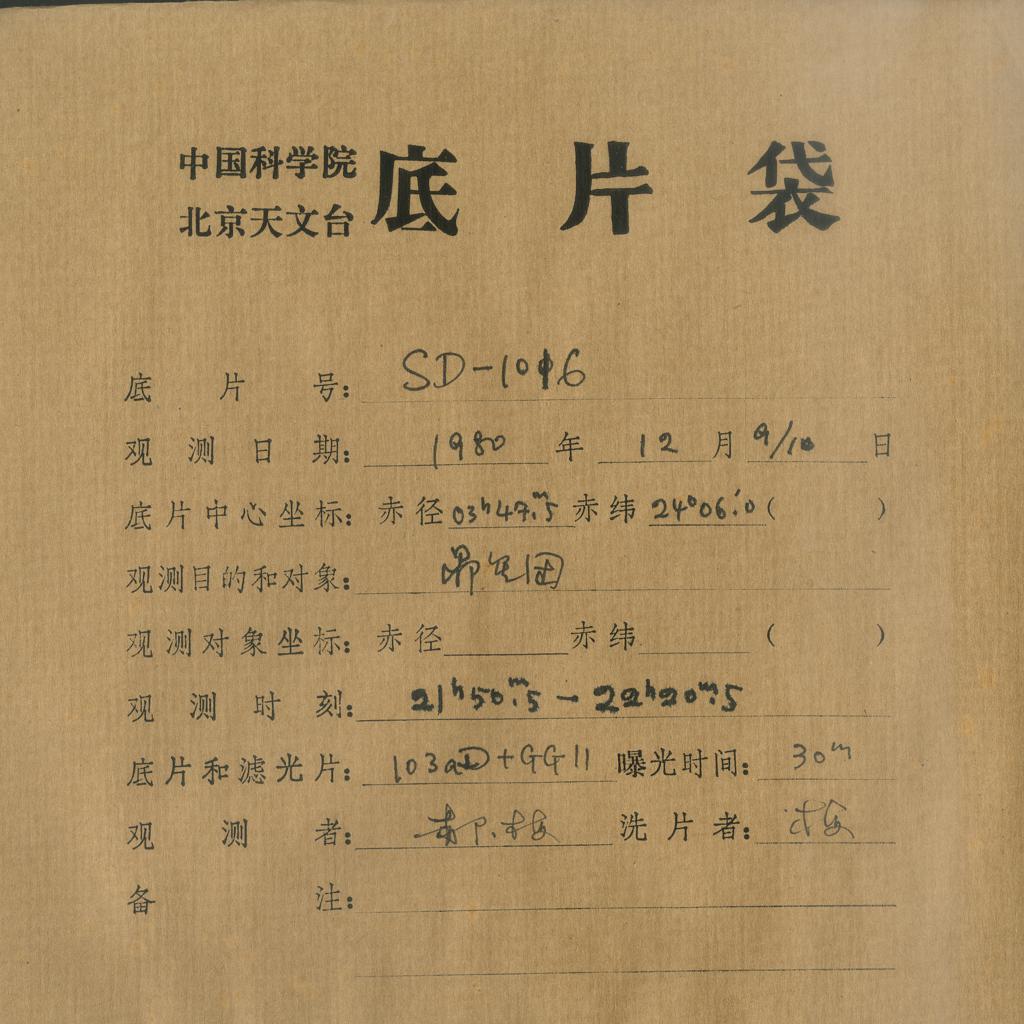 中国科学院
北京天文台
底片袋
底片号: SD-1016
观测日期: 1980 年 12 月 9/10 日
底片中心坐标: 赤径 03ʰ47ᵐ.5 赤纬 24°06'.0 ( )
观测目的和对象: 昴星团
观测对象坐标: 赤径 赤纬 ( )
观测时刻: 21ʰ50ᵐ.5 - 22ʰ20ᵐ.5
底片和滤光片: 103aD+GG11 曝光时间: 30ᵐ
观测者: 洗片者:
备注: